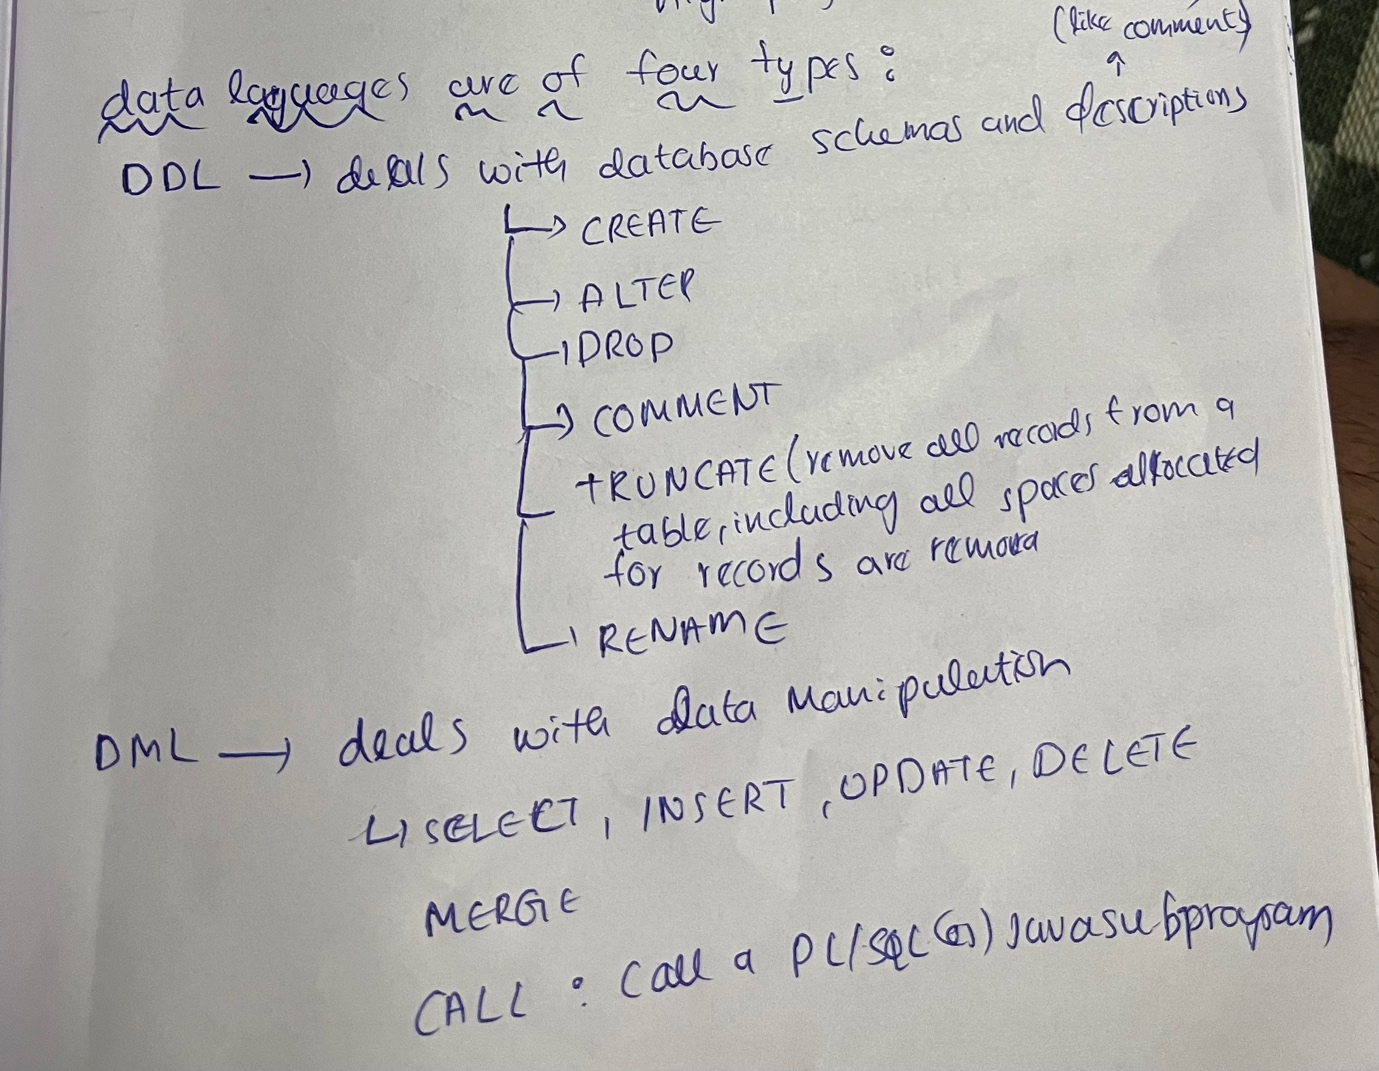 (like comment)
↑
data laguages are of four types :
DDL → deals with database schemas and descriptions
→ CREATE
→ ALTER
→ DROP
→ COMMENT
tRUNCATE (remove all records from a
table, including all spaces allocated
for records are removed
→ RENAME
DML → deals with data Manipulation
→ SELECT, INSERT, UPDATE, DELETE
MERGE
CALL : call a PL/SQL (or) Javasubprogram